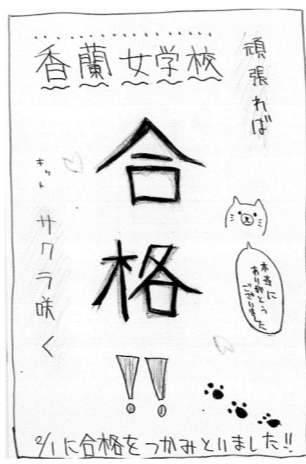 頑張れば
香蘭女学校
合格!!
キット サクラ咲く
本当に
ありがとう
ございました
2/1に合格をつかみとりました!!